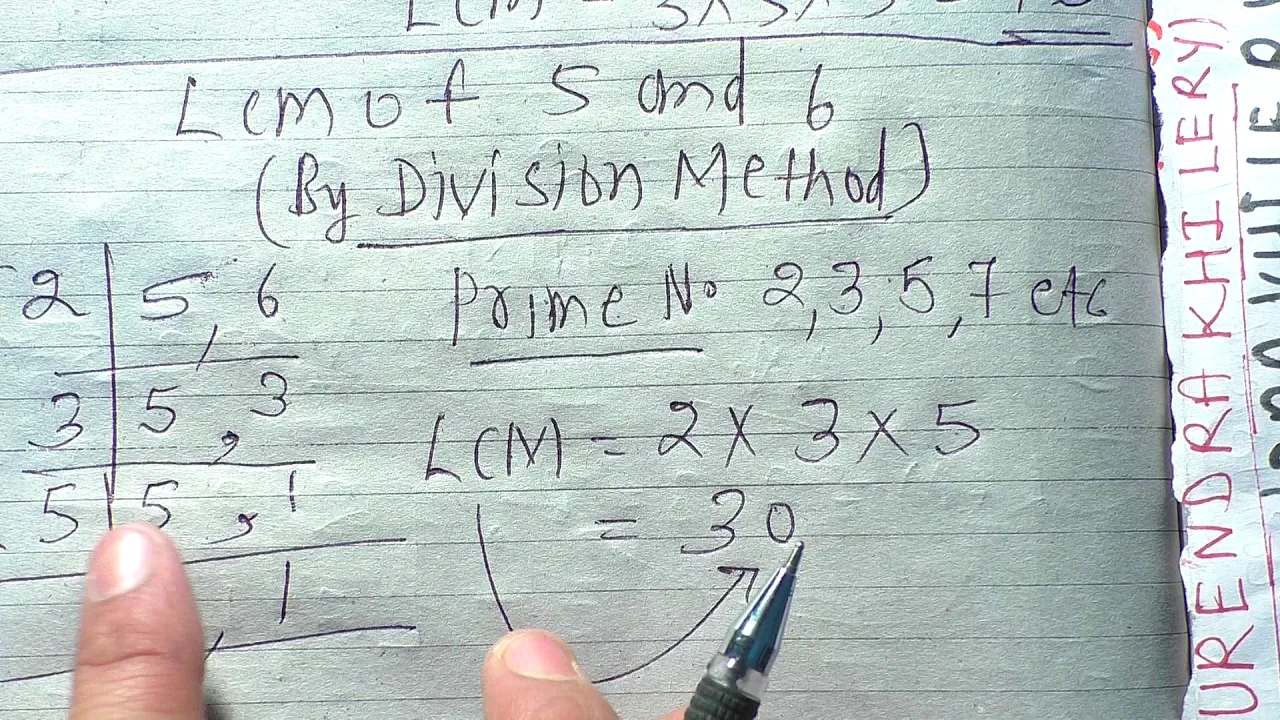 LCM of 5 and 6
(By Division Method)
2 | 5, 6
Prime No 2, 3, 5, 7 etc
3 | 5, 3
LCM = 2 × 3 × 5
5 | 5, 1
= 30
, 1
URENDRA KHILERY)